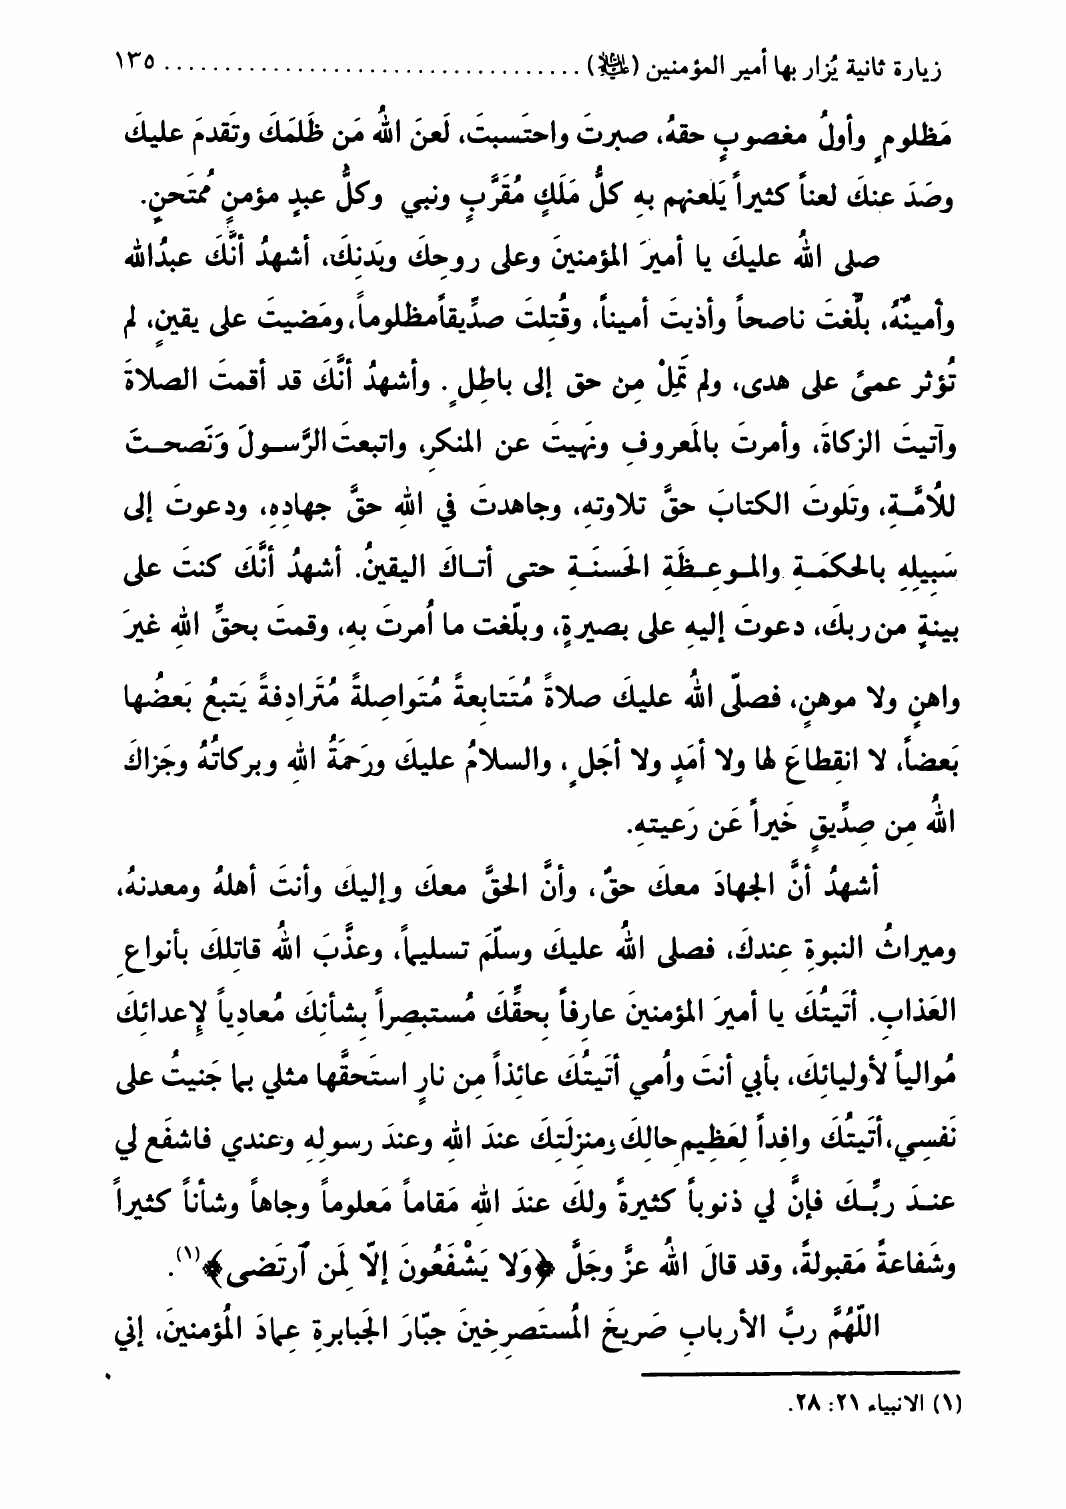 زيارة ثانية يُزار بها أمير المؤمنين (عليه السلام) .................................. ١٣٥
مَظلومٍ وأولُ مغصوبٍ حقهُ، صبرتَ واحتَسبتَ، لَعنَ اللهُ مَن ظَلَمَكَ وتَقدمَ عليكَ
وصَدَ عنكَ لعناً كثيراً يَلعنهم بهِ كلُّ مَلَكٍ مُقَرَّبٍ ونبي وكلُّ عبدٍ مؤمنٍ مُمتَحنٍ.
صلى اللهُ عليكَ يا أميرَ المؤمنينَ وعلى روحِكَ وبَدنِكَ، أشهدُ أنَّكَ عبدُالله
وأمينُهُ، بلَّغتَ ناصحاً وأذيتَ أميناً، وقُتِلتَ صدِّيقاًمظلوماً،ومَضيتَ على يقينٍ، لم
تُؤثر عمىً على هدى، ولم تَمِلْ مِن حق إلى باطِلٍ. وأشهدُ أنَّكَ قد أقمتَ الصلاةَ
وآتيتَ الزكاةَ، وأمرتَ بالمَعروفِ ونهَيتَ عن المنكرِ، واتبعتَ الرَّسولَ وَنَصحتَ
للأمَّةِ، وتَلوتَ الكتابَ حقَّ تلاوتهِ، وجاهدتَ في اللهِ حقَّ جهادِهِ، ودعوتَ إلى
سَبِيلِهِ بالحكمَةِ والموعِظَةِ الحَسنَةِ حتى أتاكَ اليقينُ. أشهدُ أنَّكَ كنتَ على
بينةٍ من ربكَ، دعوتَ إليهِ على بصيرةٍ، وبلّغت ما أُمرتَ بهِ، وقمتَ بحقِّ اللهِ غيرَ
واهنٍ ولا موهنٍ، فصلّى اللهُ عليكَ صلاةً مُتَتابعةً مُتَواصِلةً مُتَرادِفةً يَتبعُ بَعضُها
بَعضاً، لا انقِطاعَ لها ولا أمَدٍ ولا أجَلٍ، والسلامُ عليكَ ورَحمَةُ اللهِ وبركاتُهُ وجَزاكَ
اللهُ مِن صِدِّيقٍ خَيراً عَن رَعيتهِ.
أشهدُ أنَّ الجهادَ معكَ حقٌ، وأنَّ الحقَّ معكَ وإليكَ وأنتَ أهلهُ ومعدنهُ،
وميراثُ النبوةِ عِندكَ، فصلى اللهُ عليكَ وسلّمَ تسليماً، وعذَّبَ اللهُ قاتِلكَ بأنواعِ
العَذابِ. أتَيتُكَ يا أميرَ المؤمنينَ عارِفاً بِحقِّكَ مُستبصِراً بِشأنِكَ مُعادياً لإعدائِكَ
مُوالياً لأوليائِكَ، بأبي أنتَ وأُمي أتَيتُكَ عائِذاً مِن نارٍ استَحقَّها مثلي بما جَنيتُ على
نَفسِي،أتَيتُكَ وافِداً لِعَظِيمِ حالِكَ ومنزلَتِكَ عندَ اللهِ وعندَ رسولِهِ وعندي فاشفَع لي
عندَ ربِّكَ فإنَّ لي ذنوباً كثيرةً ولكَ عندَ اللهِ مَقاماً مَعلوماً وجاهاً وشأناً كثيراً
وشَفاعةً مَقبولةً، وقد قالَ اللهُ عزَّ وجَلَّ ﴿وَلا يَشْفَعُونَ إلّا لِمَن ٱرتَضى﴾(١).
اللّهُمَّ ربَّ الأربابِ صَريخَ المُستَصرِخينَ جبّارَ الجَبابرةِ عِمادَ المُؤمنينَ، إني
(١) الانبياء ٢١: ٢٨.